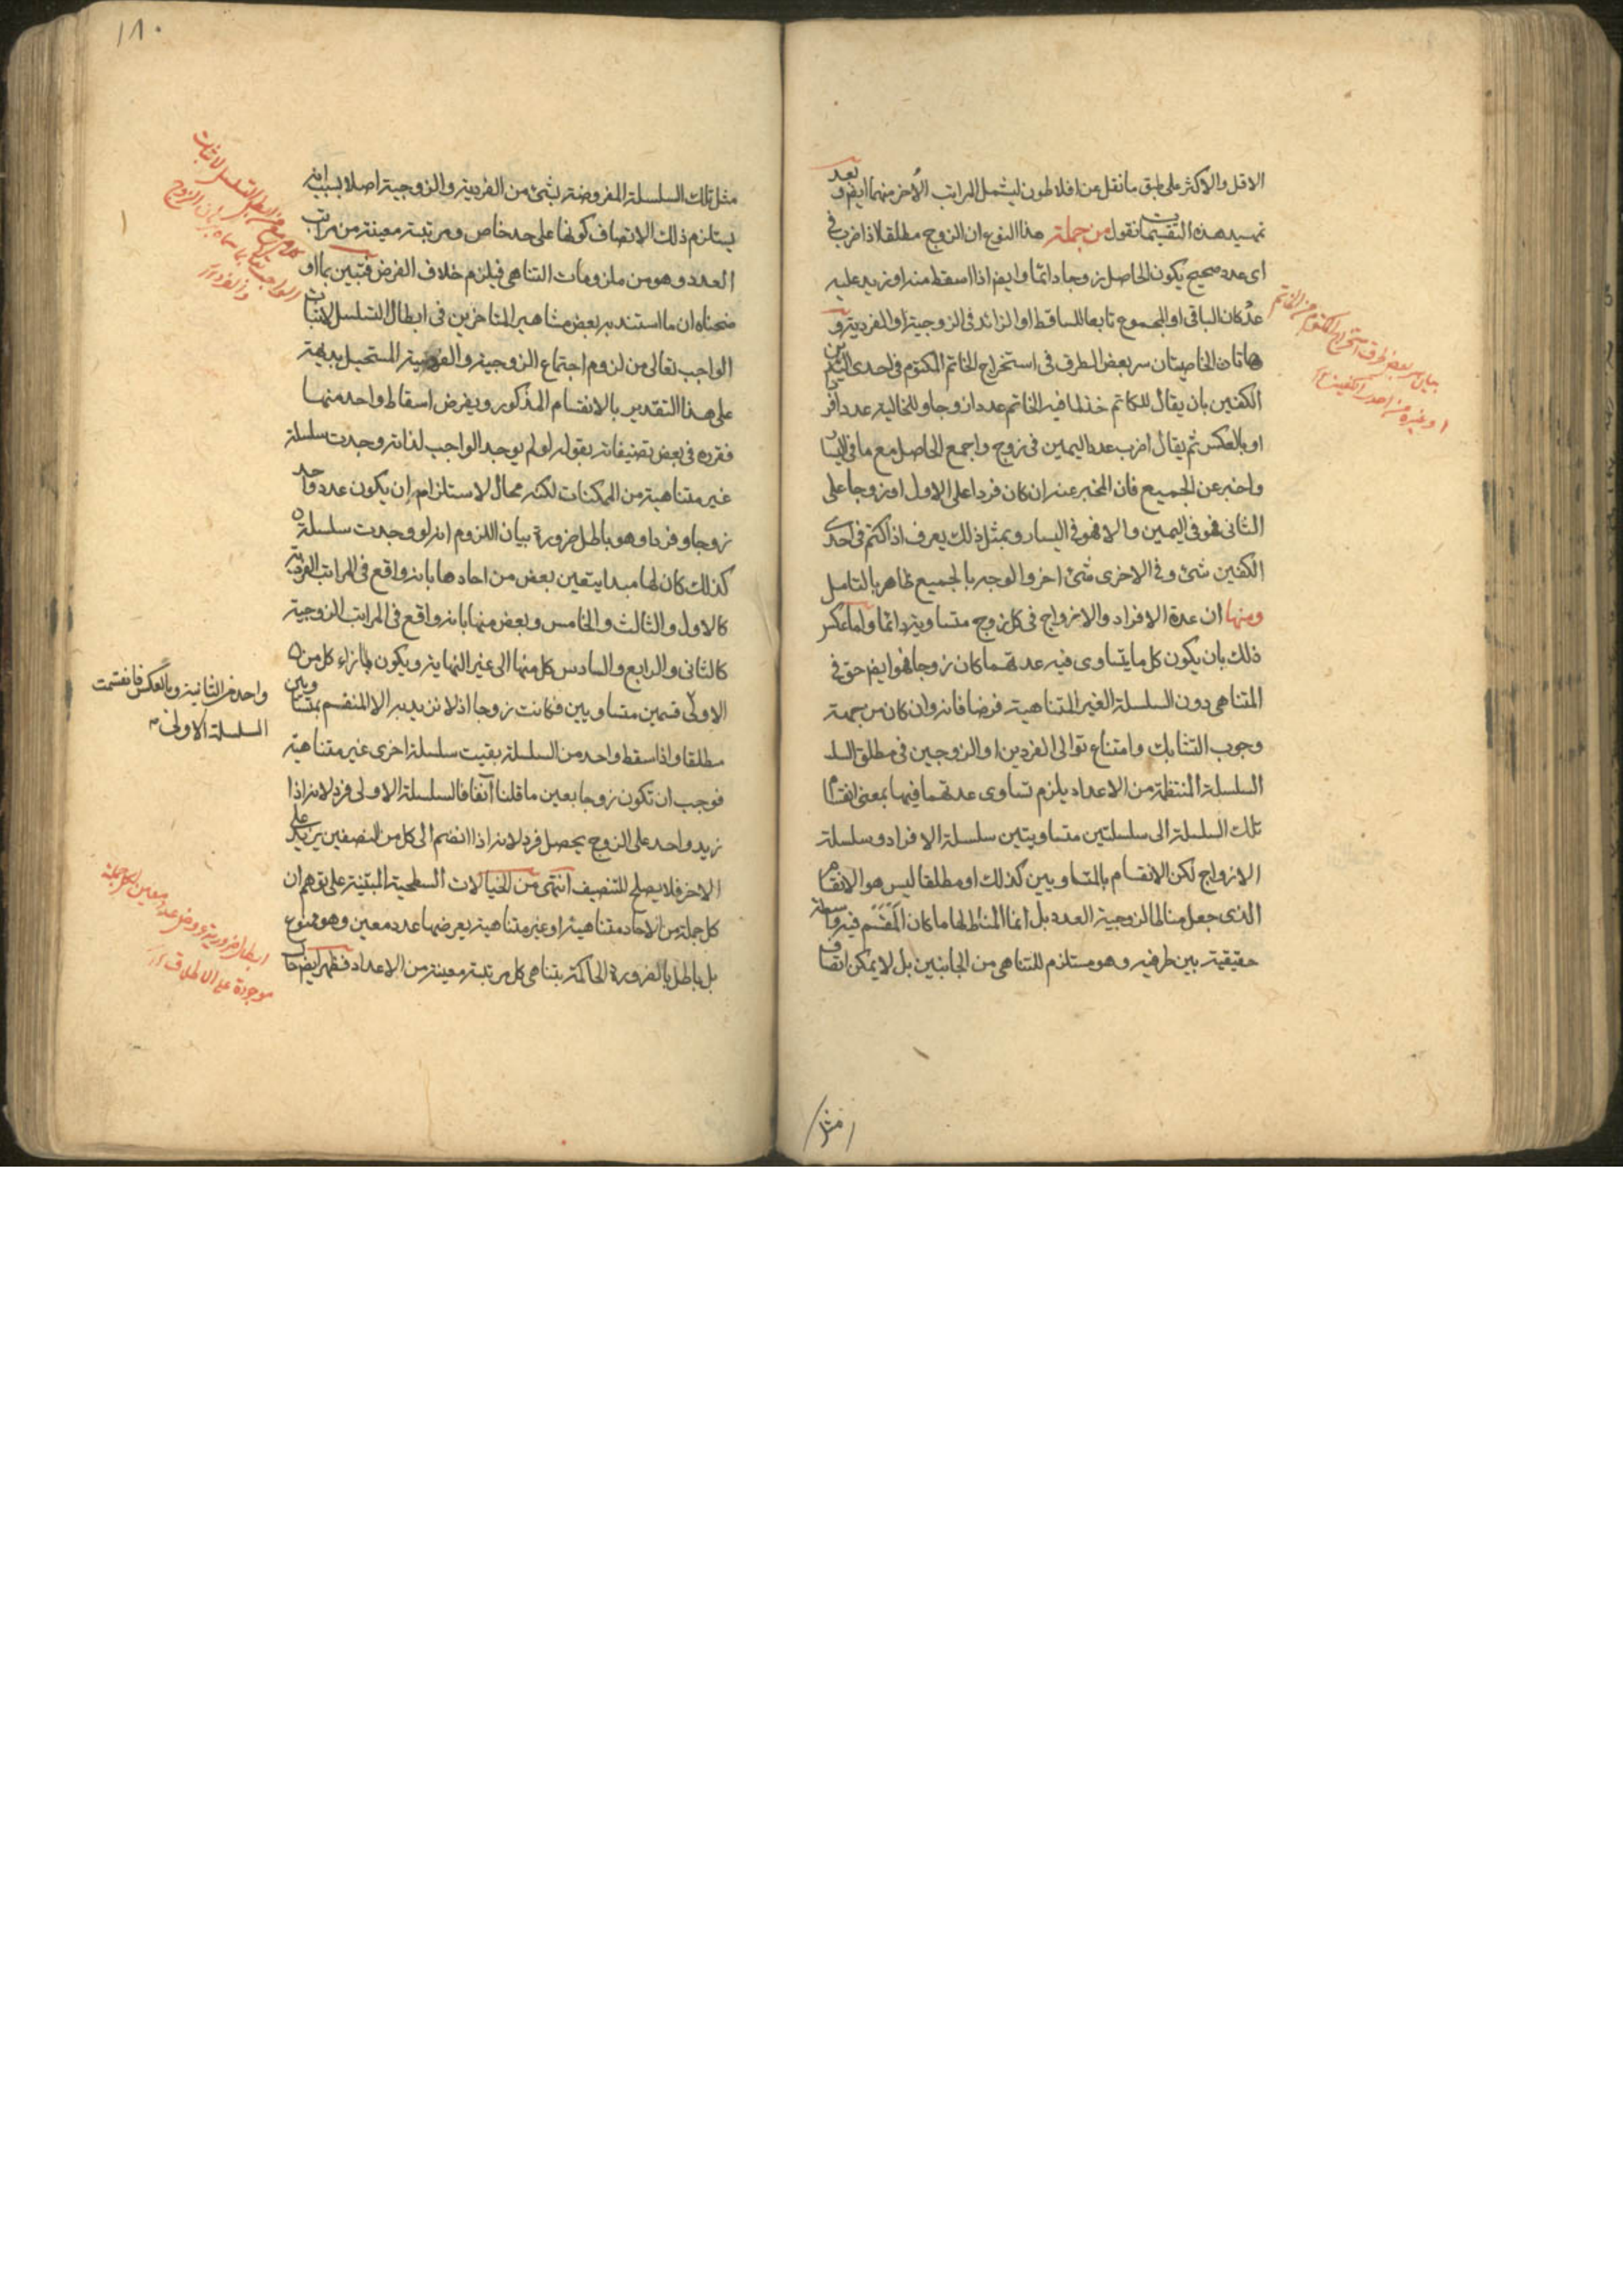 الاقل والاكثر على طبق ما نقل عن افلاطون ليشمل المراتب الأخر منهما ايضا وبعد
تمهيد هذه التقسيمات نقول من جملة هذا النوع ان الزوج مطلقا اذا ضرب في
اي عدد صحيح يكون الحاصل زوجا دائما وايضا اذا اسقط منه او زيد عليه
عدد كان الباقي او المجموع تابعا للساقط او الزائد في الزوجية او الفردية و
هاتان الخاصيتان سر بعض الطرق في استخراج الخاتم المكتوم في احدى اليدين
الكفين بان يقال للكاتم خذ لما فيه الخاتم عددا زوجا وللخالية عددا فردا
او بالعكس ثم يقال اضرب عدد اليمين في زوج واجمع الحاصل مع ما في اليسار
واخبر عن الجميع فان المخبر عنه ان كان فردا على الاول او زوجا على
الثاني فهو في اليمين والا فهو في اليسار وبمثل ذلك يعرف اذا كتم في احدى
الكفين شئ وفي الاخرى شئ اخر والوجه بالجميع ظاهر بالتامل
ومنها ان عدة الافراد والازواج في كل زوج متساوية دائما واما عكس
ذلك بان يكون كل ما يتساوى فيه عدتهما كان زوجا فهو ايضا حق في
المتناهي دون السلسلة الغير المتناهية فرضا فانه وان كان من جهة
وجوب التشابك وامتناع توالى الفردين او الزوجين في مطلق السلـ
السلسلة المنتظمة من الاعداد يلزم تساوى عدتهما فيها بمعنى انقسام
تلك السلسلة الى سلسلتين متساويتين سلسلة الافراد وسلسلة
الازواج لكن الانقسام بالمتساويين كذلك او مطلقا ليس هو الانقسام
الذى جعل مناطا لزوجية العدد بل انما المناط لها ما كان المقسم فيه واسطة
حقيقية بين طرفيه وهو مستلزم للتناهي من الجانبين بل لا يمكن اتصاف
مثل
بيان سر بعض طرق استخراج المكتوم من الخاتم
او غيره من احد الكفين
١٨٠
مثل تلك السلسلة المفروضة بشئ من الفردية والزوجية اصلا بسبب انه
يستلزم ذلك الاتصاف كونها على حد خاص ومرتبة معينة من مراتب
العدد وهو من ملزومات التناهي فيلزم خلاف الفرض فتبين بما او
ضحناه ان ما استند به بعض مشاهير المتاخرين في ابطال التسلسل لاثبات
الواجب تعالى من لزوم اجتماع الزوجية والفردية المستحيل بديهة
على هذا التقدير بالانقسام المذكور وبفرض اسقاط واحد منها
فقرره في بعض تصنيفاته بقوله لو لم يوجد الواجب لذاته وجدت سلسلة
غير متناهية من الممكنات لكنه محال لاستلزامه ان يكون عدد واحد
زوجا وفردا وهو باطل ضرورة بيان اللزوم انه لو وجدت سلسلة
كذلك كان لها مبدا يتعين بعض من احادها بانه واقع في المراتب الفردية
كالاول والثالث والخامس وبعض منها بانه واقع في المراتب الزوجية
كالثاني والرابع والسادس كل منها الى غير النهاية ويكون بازاء كل من
الاولى قسمين متساويين فكانت زوجا اذ لا نريد به الا المنقسم بمتساويين
مطلقا واذا سقط واحد من السلسلة بقيت سلسلة اخرى غير متناهية
فوجب ان تكون زوجا بعين ما قلنا آنفا فالسلسلة الاولى فرد لانه اذا
زيد واحد على الزوج يحصل فرد لانه اذا انضم الى كل من النصفين يزيد على
الاخر فلا يصلح للتنصيف انتهى من الخيالات السطحية المبتنية على توهم ان
كل جملة من الاحاد متناهية او غير متناهية يعرضها عدد معين وهو ممنوع
بل باطل بالضرورة الحاكمة بتناهي كل مرتبة معينة من الاعداد فظهر ايضا
واحد من الثانية وبالعكس فانقسمت
السلسلة الاولى
ابطال ضرورية عروض عدد معين لكل جملة
موجودة على الاطلاق